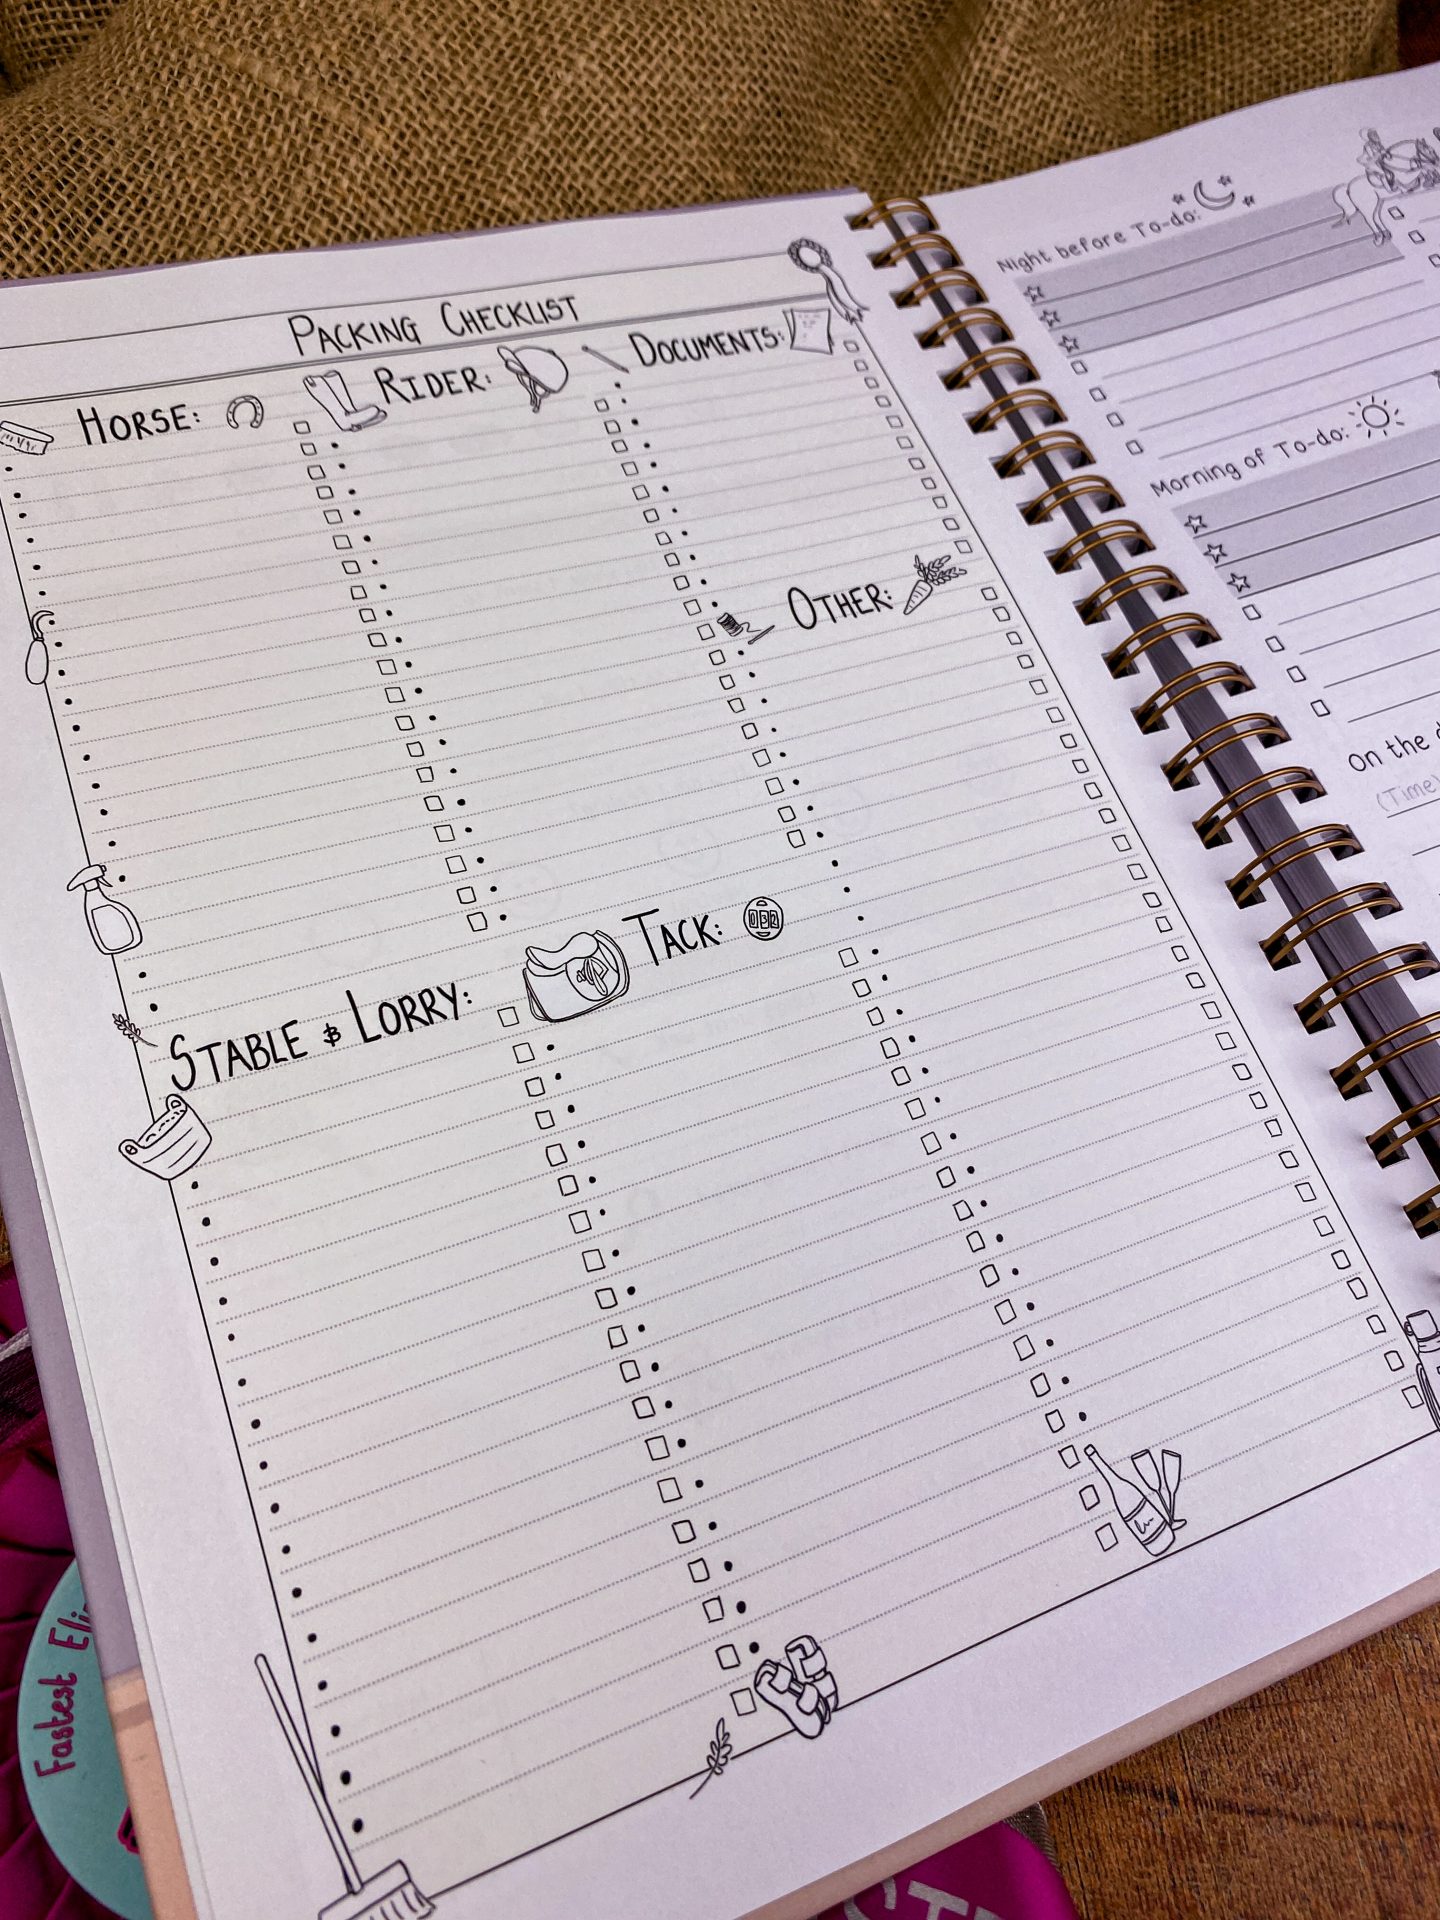 PACKING CHECKLIST
HORSE:
RIDER:
DOCUMENTS:
OTHER:
STABLE & LORRY:
TACK:
032
Night before To-do:
Morning of To-do:
On the
(Time)
Fastest